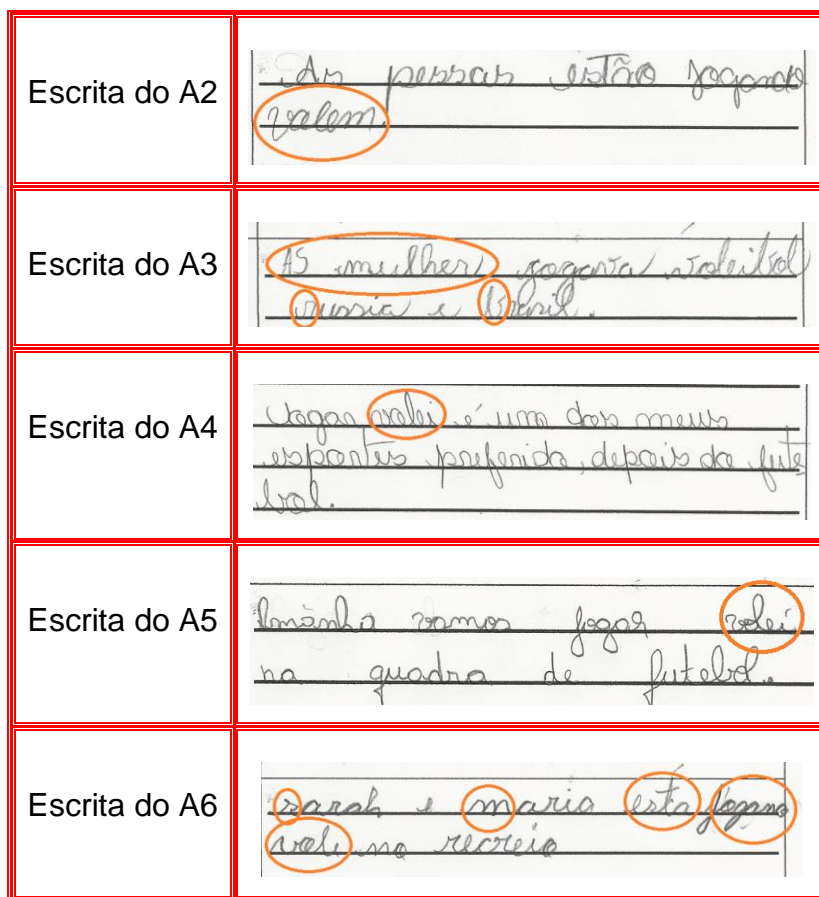 Escrita do A2
As pessoas estão jogando
valem.
Escrita do A3
AS mulher jogava voleibol
russia e brasil.
Escrita do A4
Jogar volei é um dos meus
esportes preferido, depois do fute
bol.
Escrita do A5
Amanhã vamos jogar volei
na quadra de futebol.
Escrita do A6
sarah e maria está jogano
vole no recreio